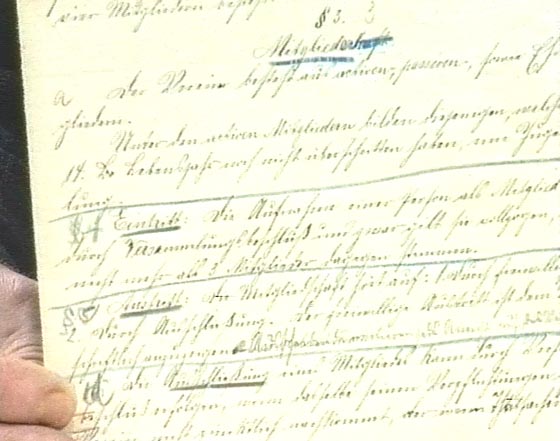 vier Mitgliedern besteh
§ 3. 3
Mitgliedschaft
a Der Verein besteht aus activen, passiven, sowie Eh
gliedern.
Unter den activen Mitgliedern bilden diejenigen, welch
14. Lebensjahr noch nicht überschritten haben, eine
lung.
§4 Eintritt: Die Aufnahme einer Person als Mitglied
durch Versammlungsbeschluß und zwar gilt sie vollzogen,
nicht mehr als 3 Mitglieder dagegen stimmen.
§5 Austritt: Die Mitgliedschaft hört auf: 1. durch freiwill
2. durch Ausschließung. Der freiwillige Austritt ist dem
schriftlich anzuzeigen
d Die Ausschließung eines Mitgliedes kann durch
erfolgen, wenn dasselbe seinen Verpflichtungen
nicht nachkommt, oder wenn